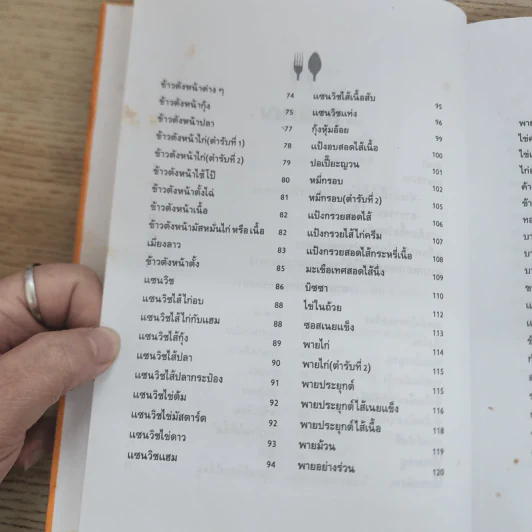 ข้าวตังหน้าต่าง ๆ 74
ข้าวตังหน้ากุ้ง 75
ข้าวตังหน้าปลา 77
ข้าวตังหน้าไก่(ตำรับที่ 1) 78
ข้าวตังหน้าไก่(ตำรับที่ 2) 79
ข้าวตังหน้าไช้โป๊ 80
ข้าวตังหน้าตั้งไฉ่ 81
ข้าวตังหน้าเนื้อ 82
ข้าวตังหน้ามัสหมั่นไก่ หรือ เนื้อ 82
เมี่ยงลาว 83
ข้าวตังหน้าตั้ง 85
แซนวิช 86
แซนวิชไส้ไก่อบ 88
แซนวิชไส้ไก่กับแฮม 88
แซนวิชไส้กุ้ง 89
แซนวิชไส้ปลา 90
แซนวิชไส้ปลากระป๋อง 91
แซนวิชไข่ต้ม 92
แซนวิชไข่มัสตาร์ด 92
แซนวิชไข่ดาว 93
แซนวิชแฮม 94
แซนวิชไส้เนื้อสับ 95
แซนวิชแท่ง 96
กุ้งหุ้มอ้อย 99
แป้งอบสอดไส้เนื้อ 100
ปอเปี๊ยะญวน 101
หมี่กรอบ 102
หมี่กรอบ(ตำรับที่ 2) 105
แป้งกรวยสอดไส้ 106
แป้งกรวยไส้ไก่ครีม 107
แป้งกรวยสอดไส้กระหรี่เนื้อ 108
มะเขือเทศสอดไส้นึ่ง 109
พิซซา 110
ไข่ในถ้วย 112
ซอสเนยแข็ง 113
พายไก่ 114
พายไก่(ตำรับที่ 2) 115
พายประยุกต์ 115
พายประยุกต์ไส้เนยแข็ง 116
พายประยุกต์ไส้เนื้อ 118
พายม้วน 119
พายอย่างร่วน 120